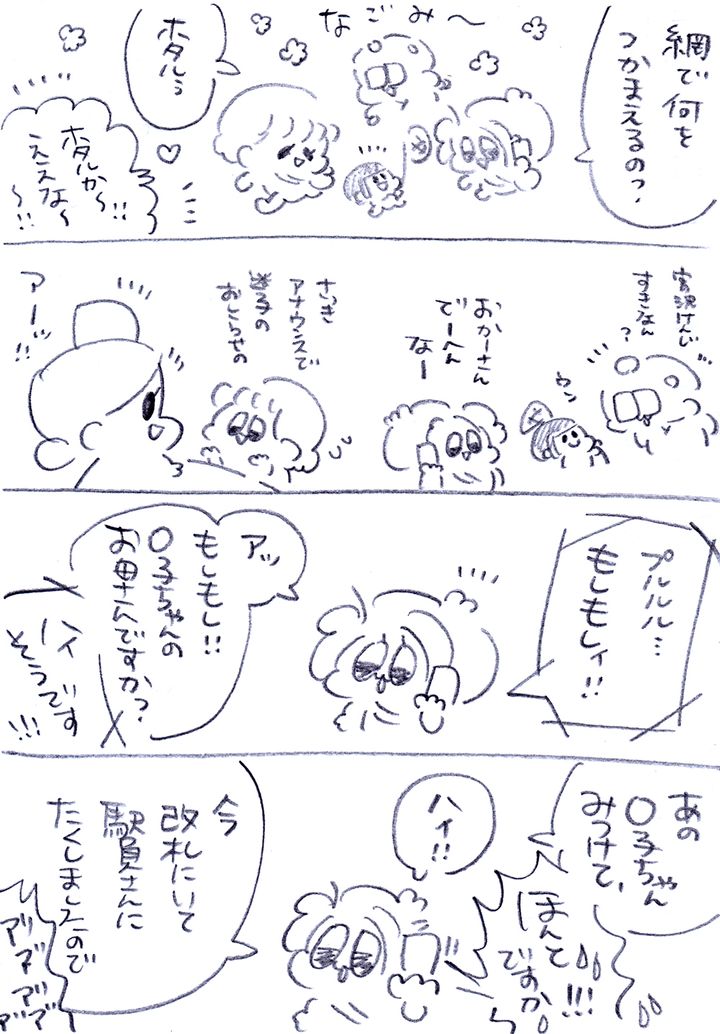 網で何を
つかまえるの?
なごみ〜
ホタルぅ
ホタルか〜!!
ええな〜
〜!!
宮沢けんじ
すきなん
?
ウン
おかーさん
でーへん
なー
さっき
アナウンスで
迷子の
おしらせの
アーッ!!
プルルル…
もしもしィ!!
アッ
もしもし!!
〇子ちゃんの
お母さんですか?
ハイ
そうです
!!!
あの
〇子ちゃん
みつけて、
ほんと
ですか!!!
ハイ!!
今
改札にいて
駅員さんに
たくしましたので